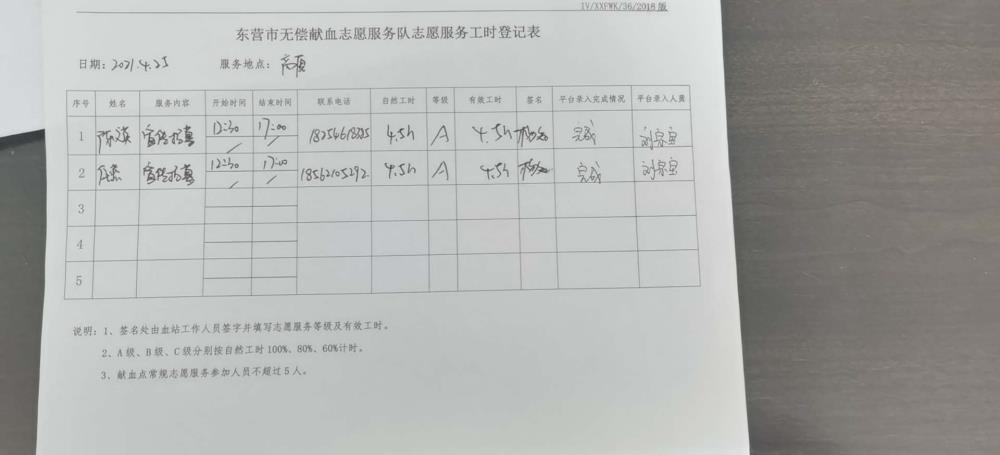 IV/XXFWK/36/2018版
东营市无偿献血志愿服务队志愿服务工时登记表
日期：2021.4.25 服务地点：
序号 姓名 服务内容 开始时间 结束时间 联系电话 自然工时 等级 有效工时 签名 平台录入完成情况 平台录入人员
1 12:30 17:00 4.5h A 4.5h 完成
2 12:30 17:00 18562105292 4.5h A 4.5h 完成
3
4
5
说明：1、签名处由血站工作人员签字并填写志愿服务等级及有效工时。
2、A级、B级、C级分别按自然工时100%、80%、60%计时。
3、献血点常规志愿服务参加人员不超过5人。